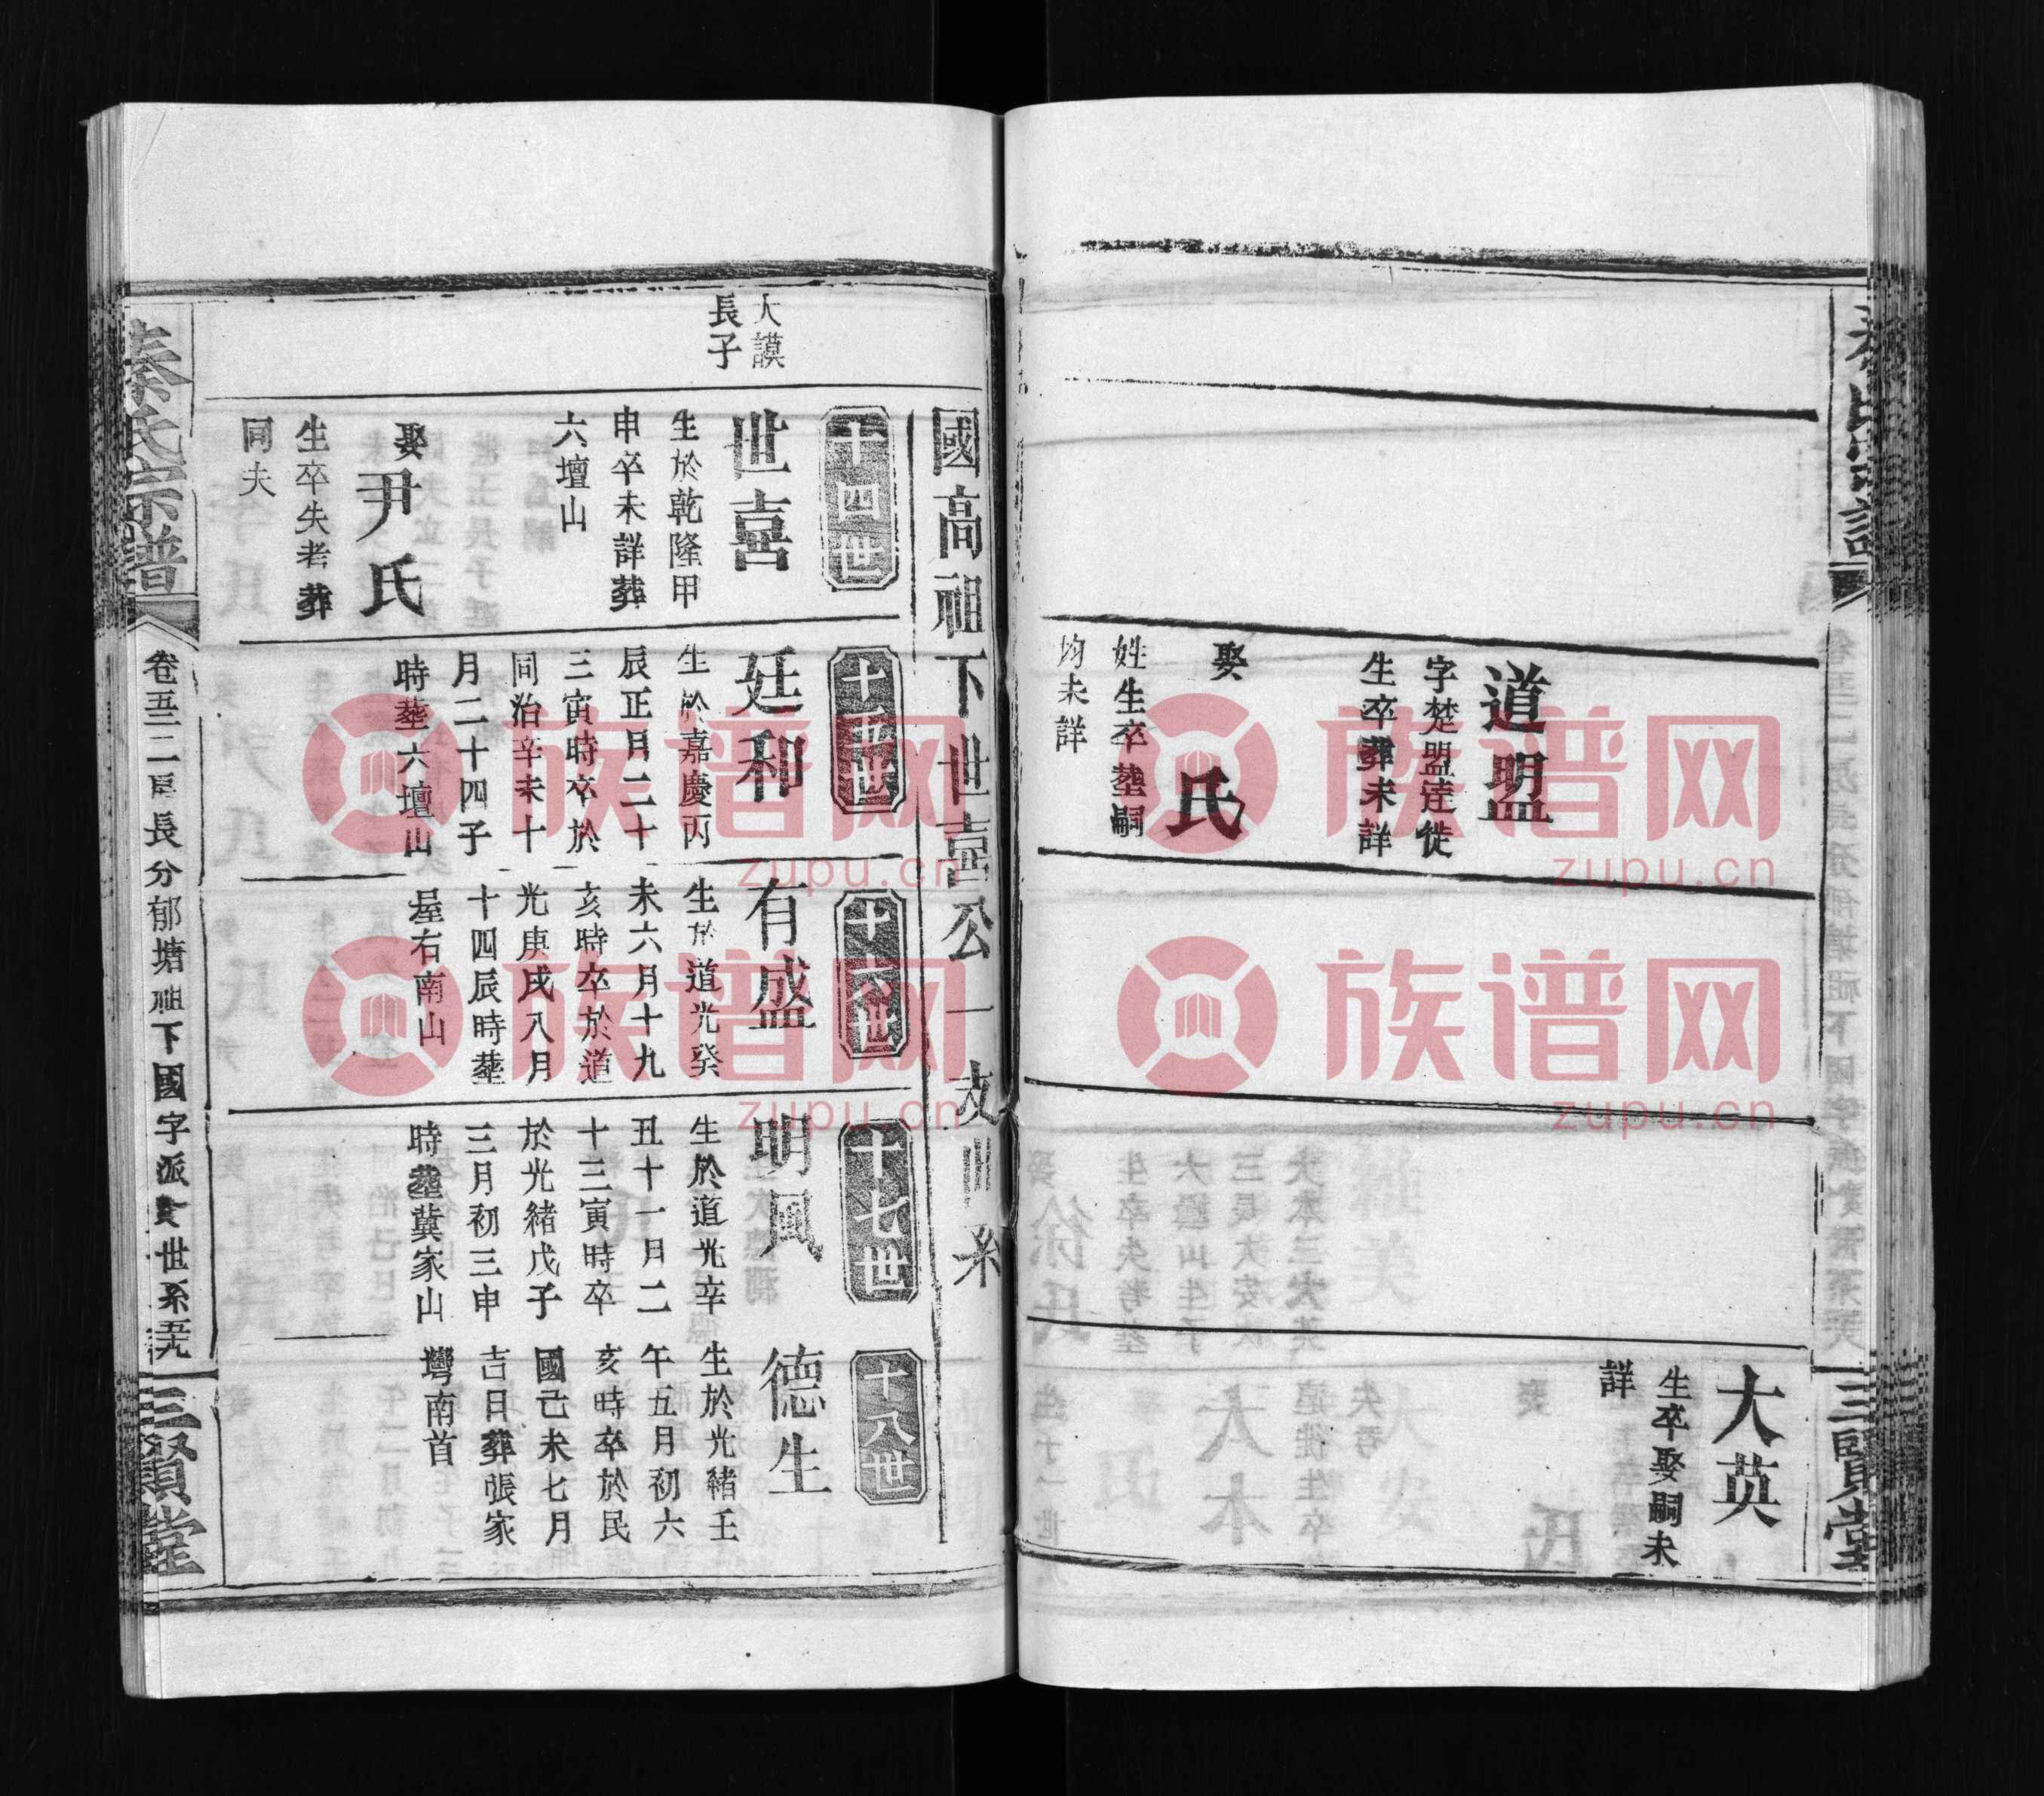 道盟
字楚盟迬徙
生卒葬未詳
娶
氏
姓生卒塟嗣
均未詳
大英
生卒娶嗣未
詳
三賢堂
國高祖下世喜公一支世系
大謨
長子
十四世
世喜
生於乾隆甲
申卒未詳葬
六壇山
娶
尹氏
生卒失考葬
同夫
十五世
廷和
生於嘉慶丙
辰正月二十
三寅時卒於
同治辛未十
月二十四子
時塟六壇山
十六世
有盛
生於道光癸
未六月十九
亥時卒於道
光庚戌八月
十四辰時塟
屋右南山
十七世
明風
生於道光辛
丑十一月二
十三寅時卒
於光緒戊子
三月初三申
時塟龔家山
十八世
德生
生於光緒壬
午五月初六
亥時卒於民
國己未七月
吉日葬張家
塆南首
秦氏宗譜
卷五二房長分郁塘祖下國字派世系
三賢堂
族谱网
zupu.cn
族谱网
zupu.cn
族谱网
zupu.cn
族谱网
zupu.cn